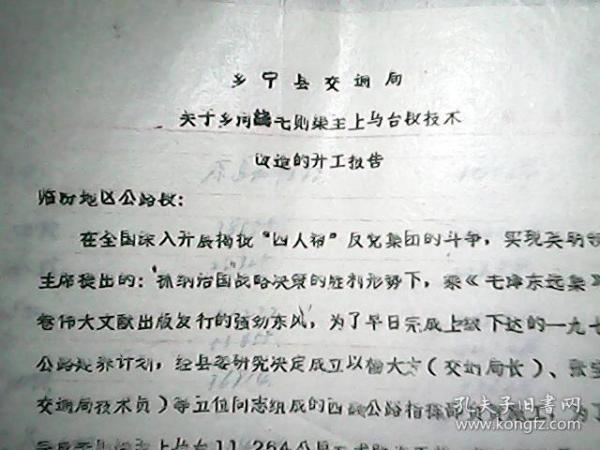 乡宁县交通局
关于乡河线七则梁至上马台段技术
改造的开工报告
临汾地区公路段:
在全国深入开展揭批“四人帮”反党集团的斗争,实现英明领
主席提出的:抓纲治国战略决策的胜利形势下,乘《毛泽东选集》
卷伟大文献出版发行的强劲东风,为了早日完成上级下达的一九七
公路建养计划,经县委研究决定成立以杨大方(交通局长)、张
交通局技术员)等五位同志组成的西 公路指挥部 施工,为了
上马台11.254公里
孔夫子旧书网
www.kongfz.com